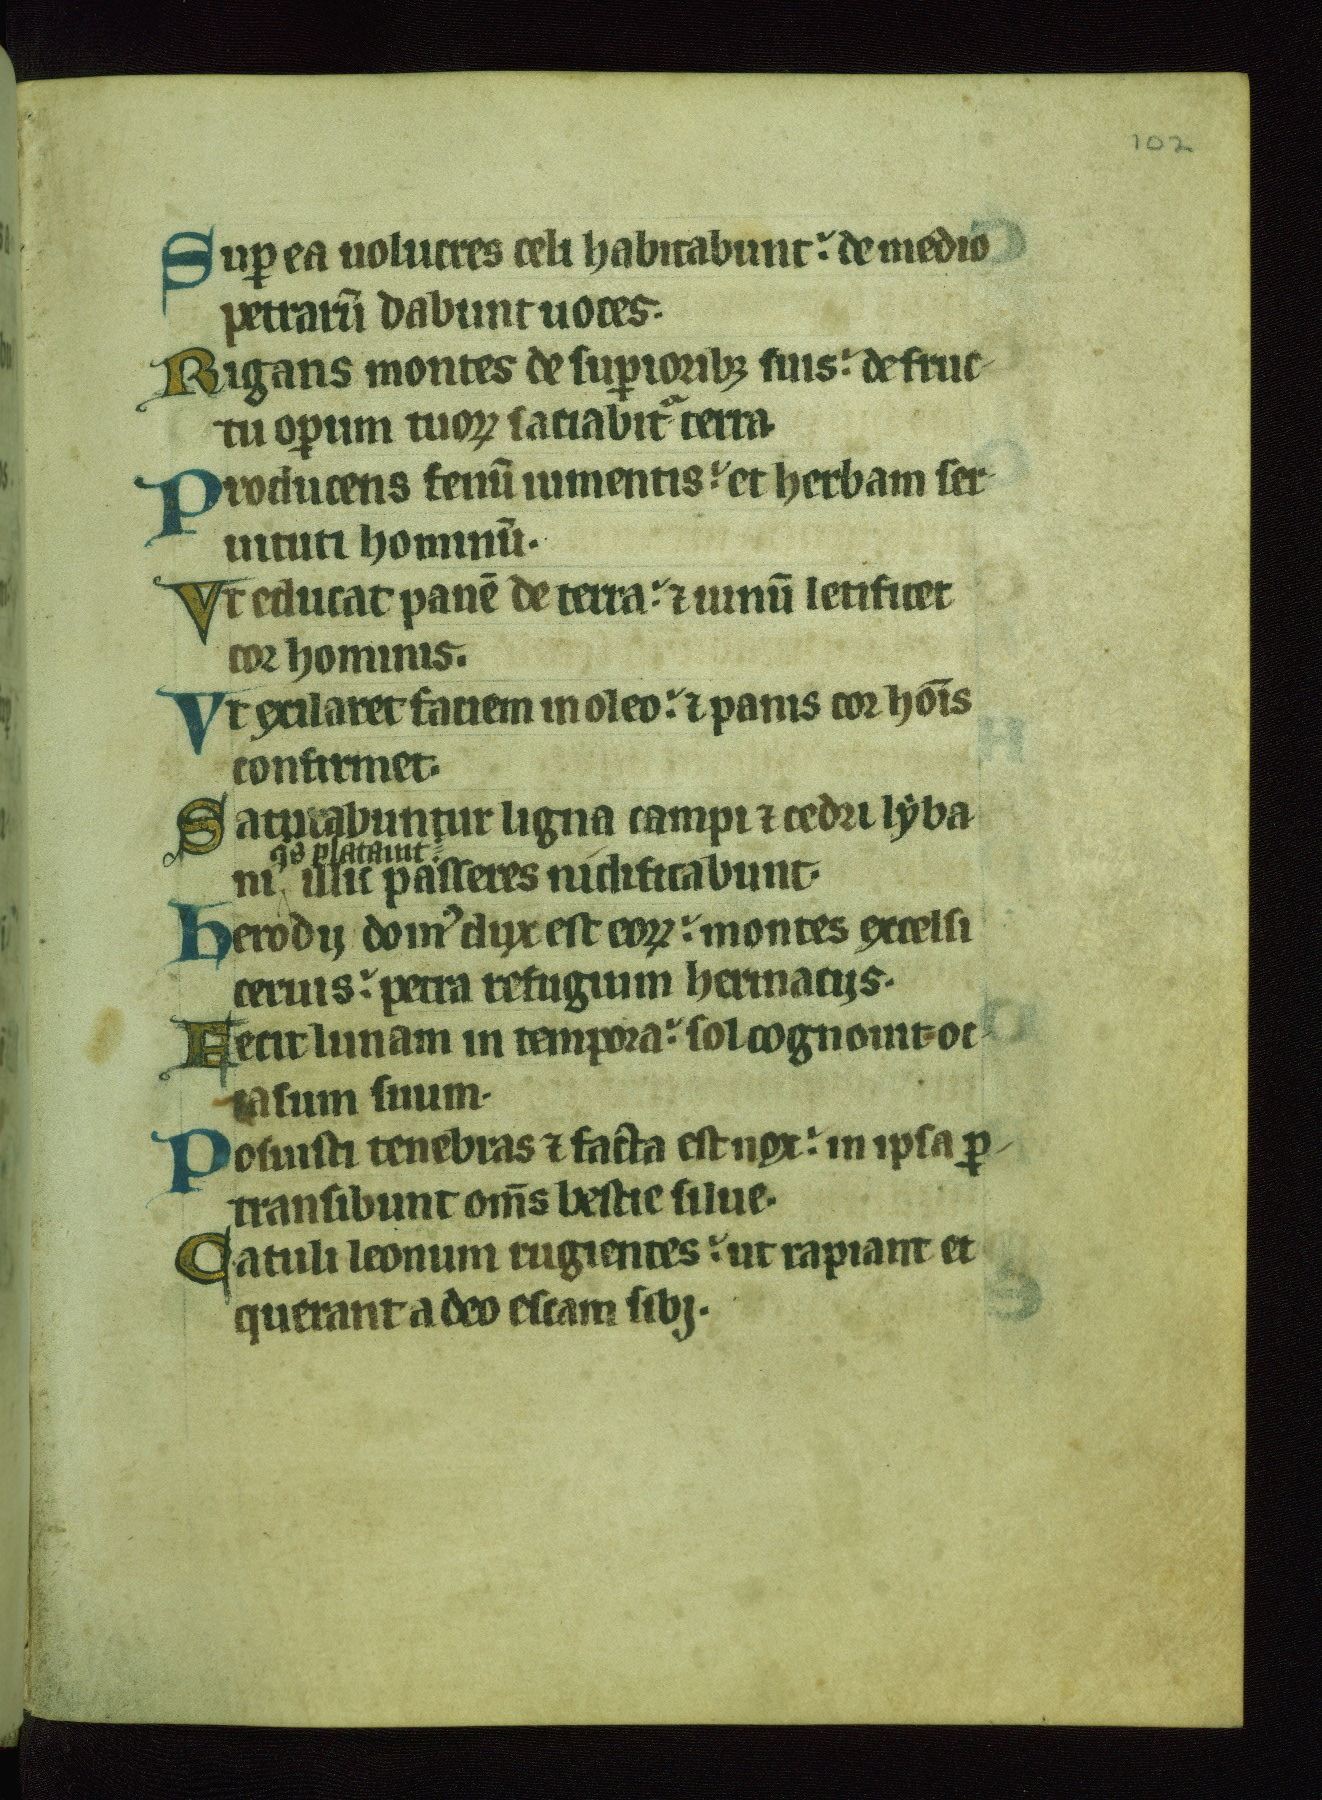 102
Sup̱ ea uolucres celi habitabunt: de medio
petrarū dabunt uoces.
Rigans montes de sup̱ioribꝫ suis: de fruc-
tu op̱um tuoꝝ saciabitᵃ terra.
Producens fenū iumentis: et herbam ser-
uituti hominū.
Vt educat panē de terra: ⁊ uinū letificet
cor hominis.
Vt exilaret faciem in oleo: ⁊ panis cor hoīs
confirmet.
Saturabuntur ligna campi ⁊ cedri lẏba
qͣs plātauit:
ni illic passeres nidificabunt.
Herodij domꝰ dux est eoꝝ: montes excelsi
ceruis: petra refugium hermacijs.
Fecit lunam in tempora: sol cognouit oc-
casum suum.
Posuisti tenebras ⁊ facta est nox: in ipsa p̱-
transibunt om̄s bestie silue.
Catuli leonum rugientes: ut rapiant et
querant a deo escam sibj.